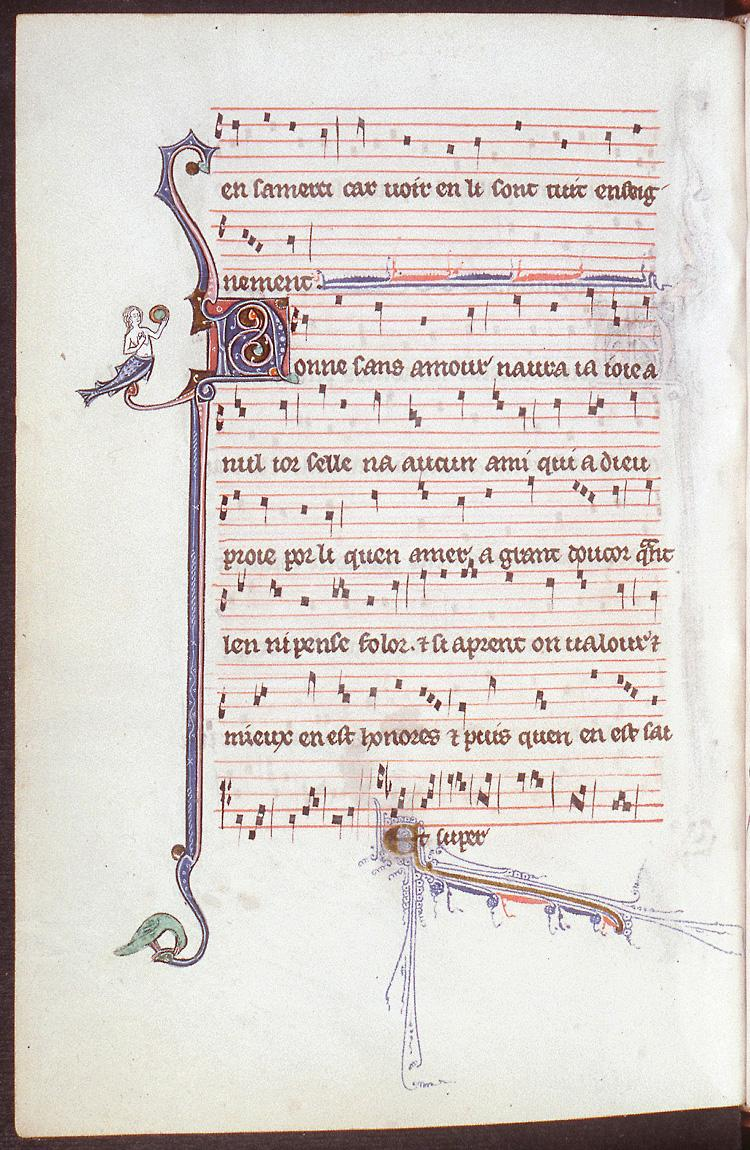 en samerci car uoir en li sont tuit enseig
nement.
Donne sans amour naura ia ioie a
nul ior selle na aucun ami qui a dieu
proie por li quen amer, a grant doucor qnt
len ni pense folor. ⁊ si aprent on ualour ⁊
mieux en est honores ⁊ puis quen en est sai
Et super